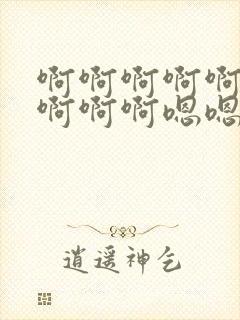 啊啊啊啊啊
啊啊啊嗯嗯
逍遥神乞